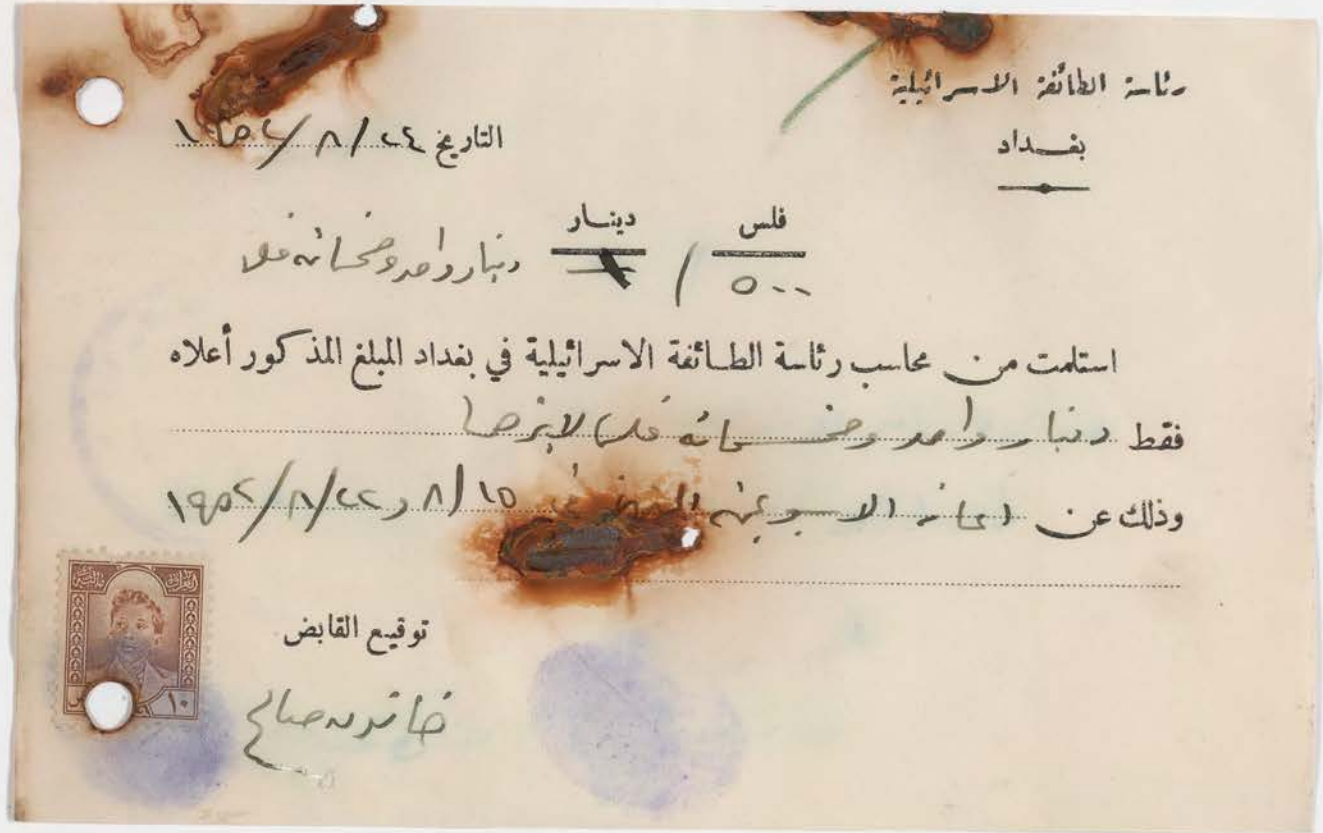 رئاسة الطائفة الاسرائيلية
بغداد
التاريخ ٢٤/٨/١٩٥٢
فلس دينار
٥٠٠ / ١ دينار واحد وخمسمائة فلسا
استلمت من محاسب رئاسة الطائفة الاسرائيلية في بغداد المبلغ المذكور أعلاه
فقط دينار واحد وخمسمائة فلسا لاغيرها
وذلك عن اعانة الاسبوعين ٨/١٥ و ١٩٥٢/٨/٢٢
توقيع القابض
خاتون صالح
١٠